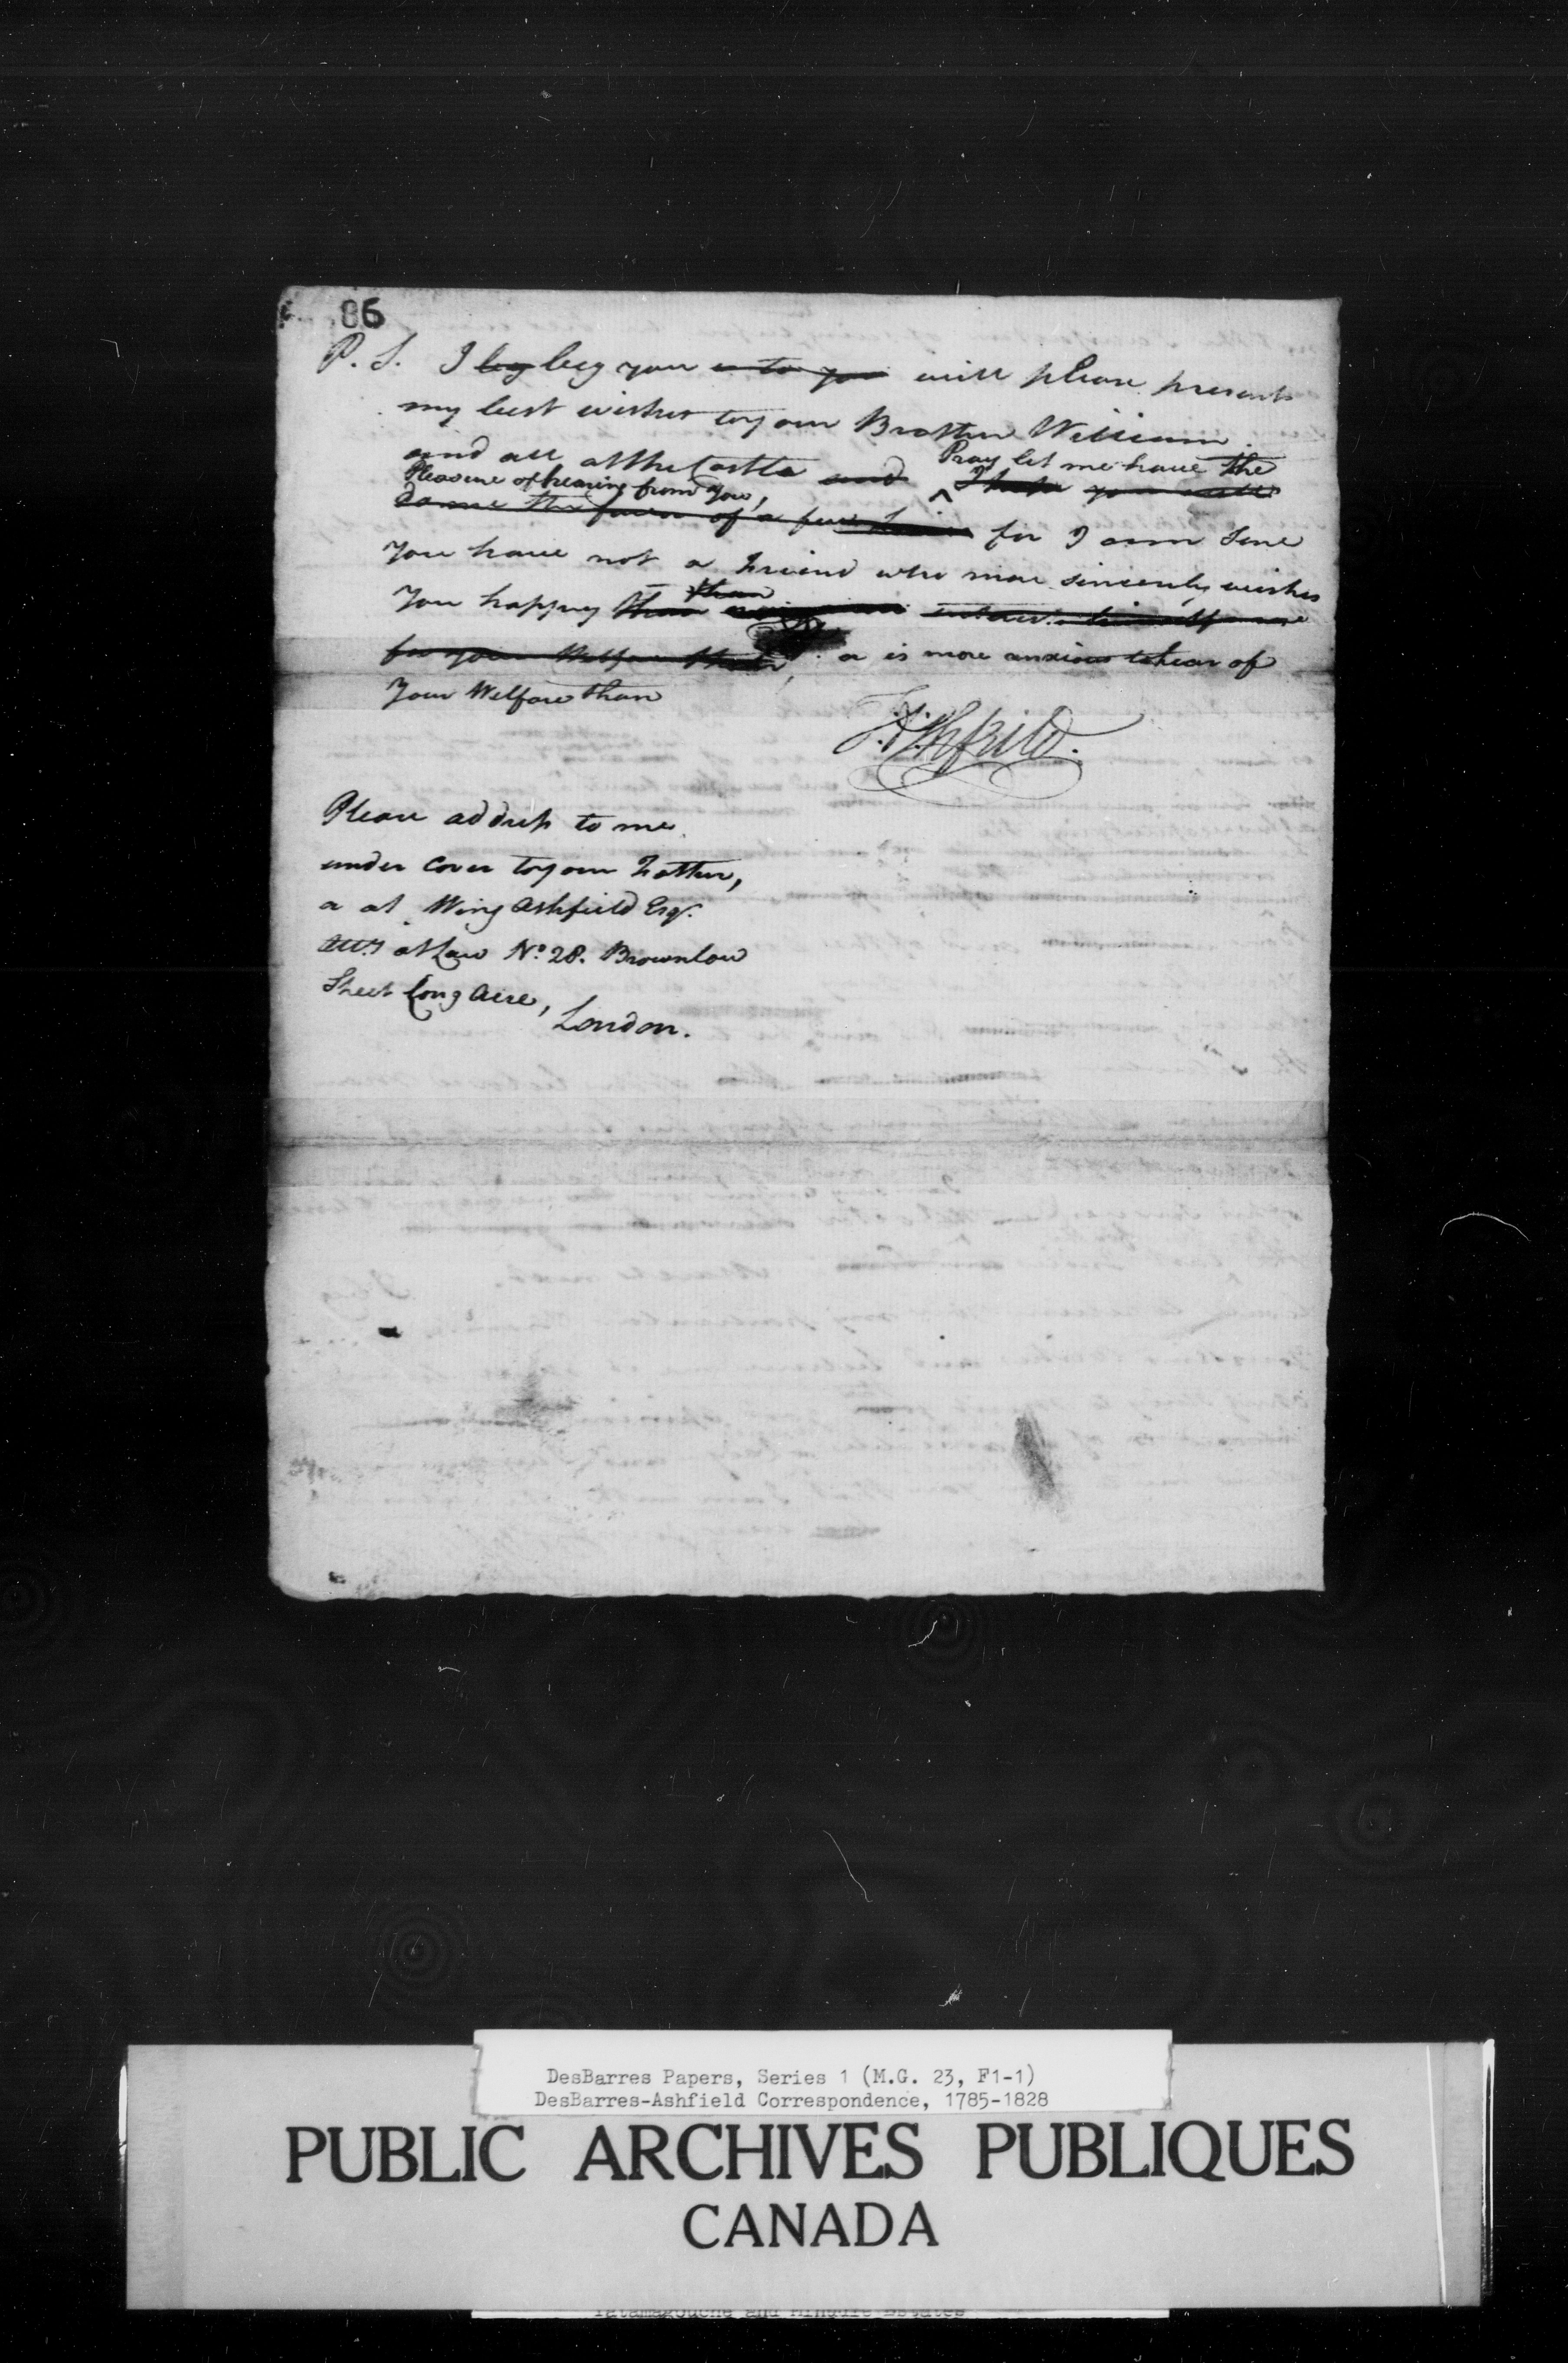 86
P. S. I beg beg you will please present
my best wishes to your Brother William
and all at the Castle and Pray let me have the
Pleasure of hearing from you,
do me the favor of a few Lines for I am Sure
you have not a friend who more sincerely wishes
you happy than than
for your Welfare than or is more anxious to hear of
Your Welfare than
Ashfield.
Please address to me
under Cover to your Father,
or at Wing Ashfield Esqr.
Atty at Law No. 28. Brownlow
Street Long Acre,
London.
DesBarres Papers, Series 1 (M.G. 23, F1-1)
DesBarres-Ashfield Correspondence, 1785-1828
PUBLIC ARCHIVES PUBLIQUES
CANADA
Tatamagouche and Minudie Estates